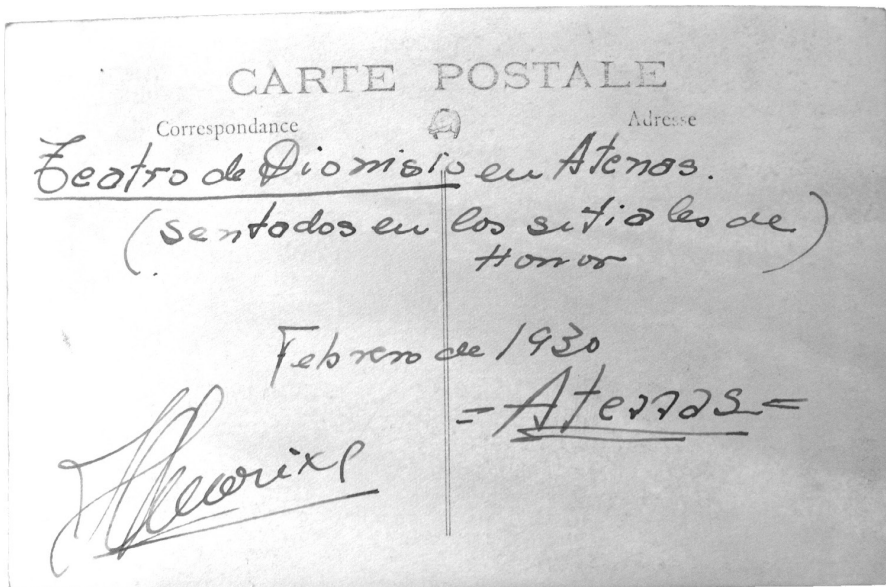 CARTE POSTALE
Correspondance
Adresse
Teatro de Dionisio en Atenas.
(sentados en los sitiales de
Honor)
Febrero de 1930
= Atenas =